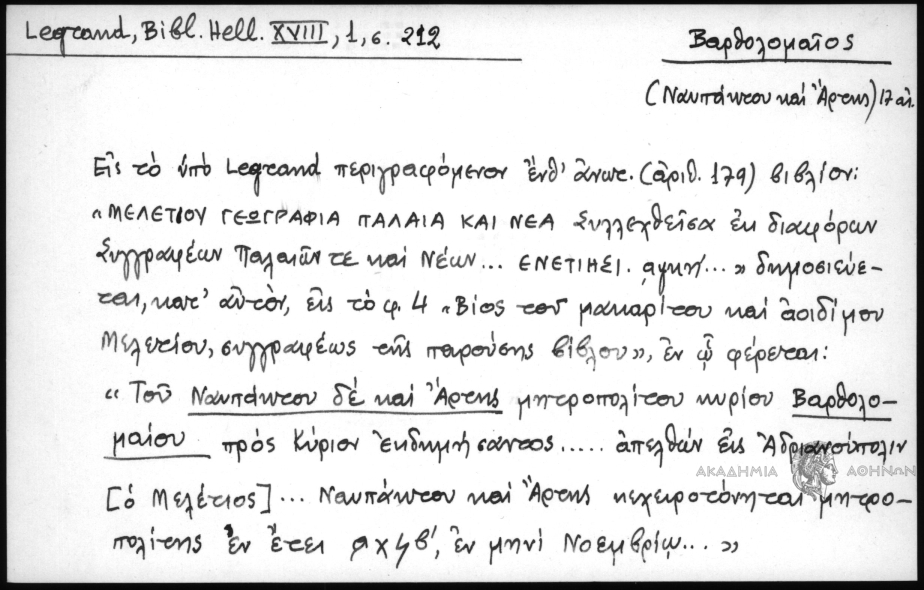 Legrand, Bibl. Hell. XVIII, 1, σ. 212
Βαρθολομαῖος
(Ναυπάκτου καί Ἄρτης) 17 αἰ.
Εἰς τό ὑπό Legrand περιγραφόμενον ἔνθ' ἄνωτ. (ἀριθ. 179) βιβλίον:
"ΜΕΛΕΤΙΟΥ ΓΕΩΓΡΑΦΙΑ ΠΑΛΑΙΑ ΚΑΙ ΝΕΑ Συλλεχθεῖσα ἐκ διαφόρων
Συγγραφέων Παλαιῶν τε καί Νέων... ΕΝΕΤΙΗΣΙ. αψκη΄...» δημοσιεύε-
ται, κατ' αὐτόν, εἰς τό φ. 4 "Βίος τοῦ μακαρίτου καί ἀοιδίμου
Μελετίου, συγγραφέως τῆς παρούσης βίβλου», ἐν ᾧ φέρεται:
"Τοῦ Ναυπάκτου δέ καί Ἄρτης μητροπολίτου κυρίου Βαρθολο-
μαίου πρός Κύριον ἐκδημήσαντος..... ἀπελθών εἰς Ἀδριανούπολιν
[ὁ Μελέτιος]... Ναυπάκτου καί Ἄρτης κεχειροτόνηται μητρο-
πολίτης ἐν ἔτει αχϟβ΄, ἐν μηνί Νοεμβρίῳ...»
ΑΚΑΔΗΜΙΑ ΑΘΗΝΩΝ